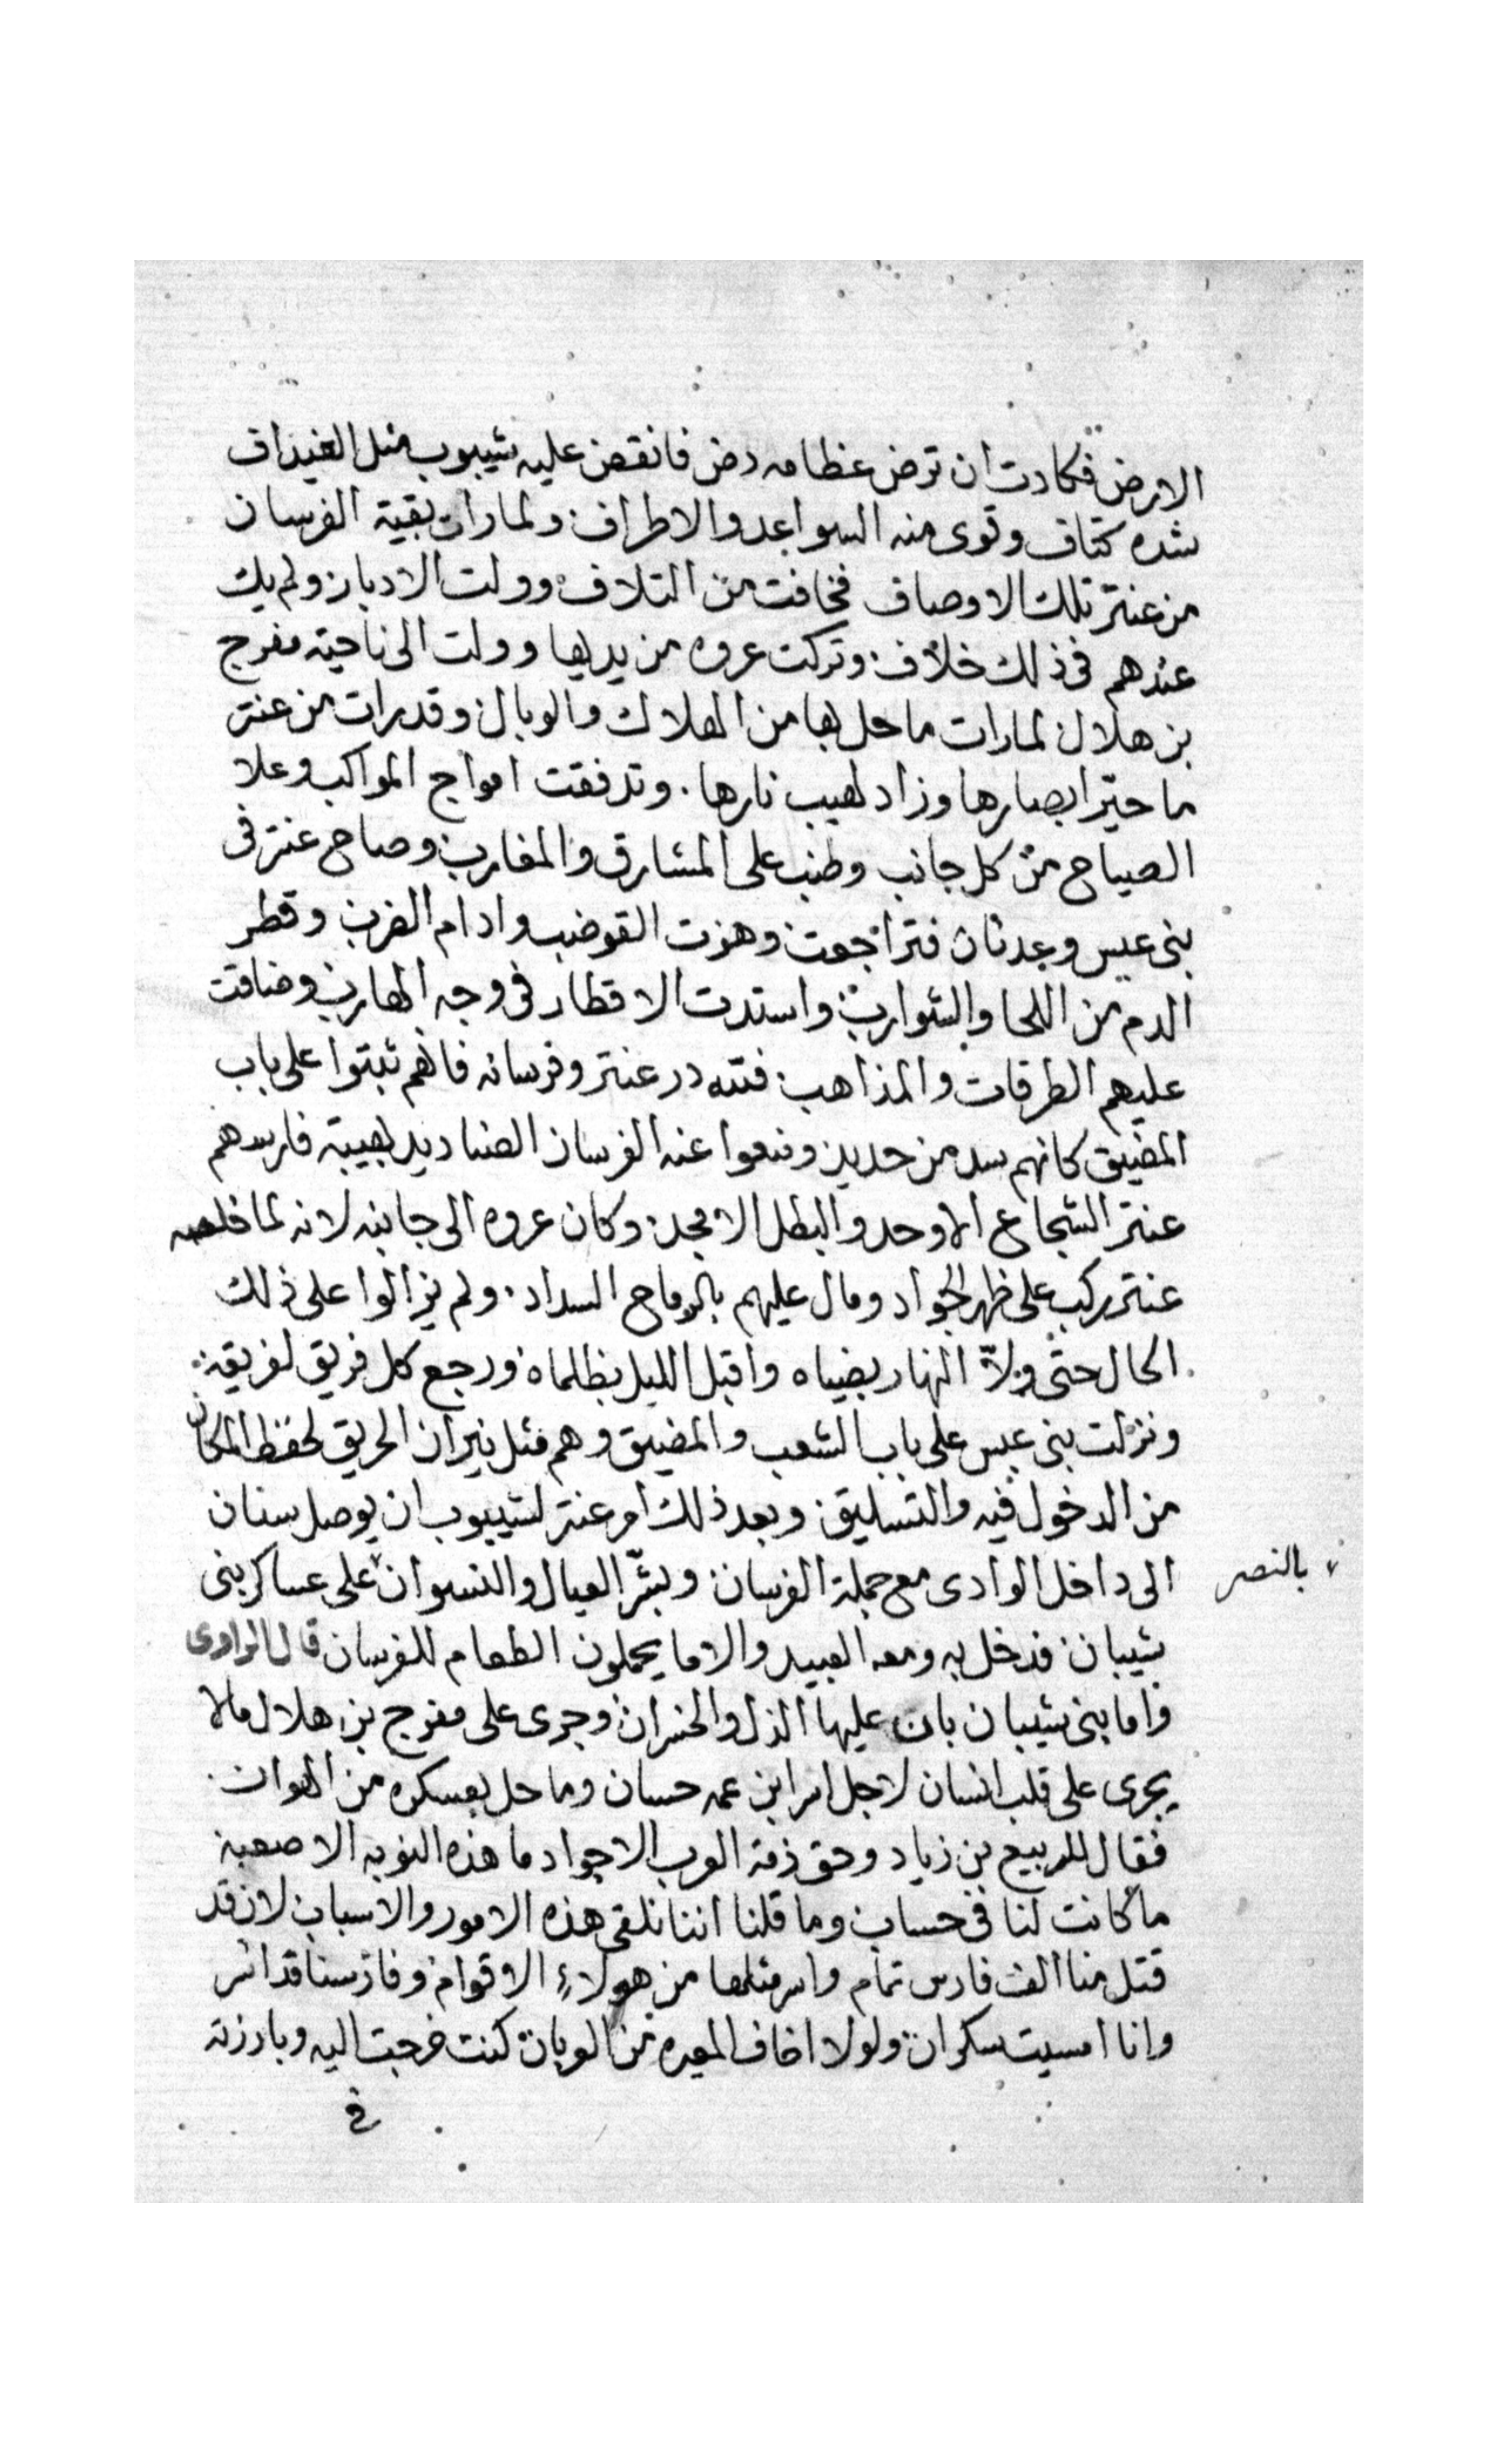 الارض فكادت ان ترض عظامه رض فانقض عليه شيبوب مثل الغيداف
شده كتاف وقوى منه السواعد والاطراف ولما رات بقية الفرسان
من عنتر تلك الاوصاف فخافت من التلاف وولت الادبار ولم يك
عندهم فى ذلك خلاف وتركت عروه من يديها وولت الى ناحية مفرج
بن هلال لما رات ما حل بها من الهلاك والوبال وقد رات من عنتر
ما حيّر ابصارها وزاد لهيب نارها. وتدفقت امواج المواكب وعلا
الصياح من كل جانب وطنب على المشارق والمغارب وصاح عنتر فى
بنى عبس وعدنان فتراجعت وهزت القوضب وادام الضرب وقطر
الدم من اللحا والشوارب واستدت الاقطار فى وجه الهارب وضاقت
عليهم الطرقات والمذاهب فلله در عنتر وفرسانه فانهم ثبتوا على باب
المضيق كانهم سد من حديد ومنعوا عنه الفرسان الصناديد بهيبة فارسهم
عنتر الشجاع الاوحد والبطل الامجد وكان عروه الى جانبه لانه لما خلصه
عنتر ركب على ظهر الجواد ومال عليهم بالرماح السداد. ولم يزالوا على ذلك
الحال حتى ولاّ النهار بضياه واقبل الليل بظلماه ورجع كل فريق لفريقه
ونزلت بنى عبس على باب الشعب والمضيق وهم مثل نيران الحريق لحفظ المكان
من الدخول فيه والتسليق وبعد ذلك امر عنتر لشيبوب ان يوصل سنان
الى داخل الوادى مع جملة الفرسان وبشّر العيال والنسوان على عساكر بنى
بالنصر
شيبان فدخل به ومعه العبيد والاما يحملون الطعام للفرسان قال الراوى
واما بنى شيبان بان عليها الذل والخسران وجرى على مفرج بن هلال مالا
يجرى على قلب انسان لاجل اسر ابن عمه حسان وما حل بعسكره من الهوان.
فقال للربيع بن زياد وحق ذمة العرب الاجواد ما هذه النوبه الا صعبة
ما كانت لنا فى حساب وما قلنا اننا نلقى هذه الامور والاسباب لان قد
قتل منا الف فارس تمام واسر مثلها من هولاءِ الاقوام وفارسنا قد اسر
وانا امسيت سكران ولولا اخاف المعيره من العربان كنت خرجت اليه وبارزته
فى